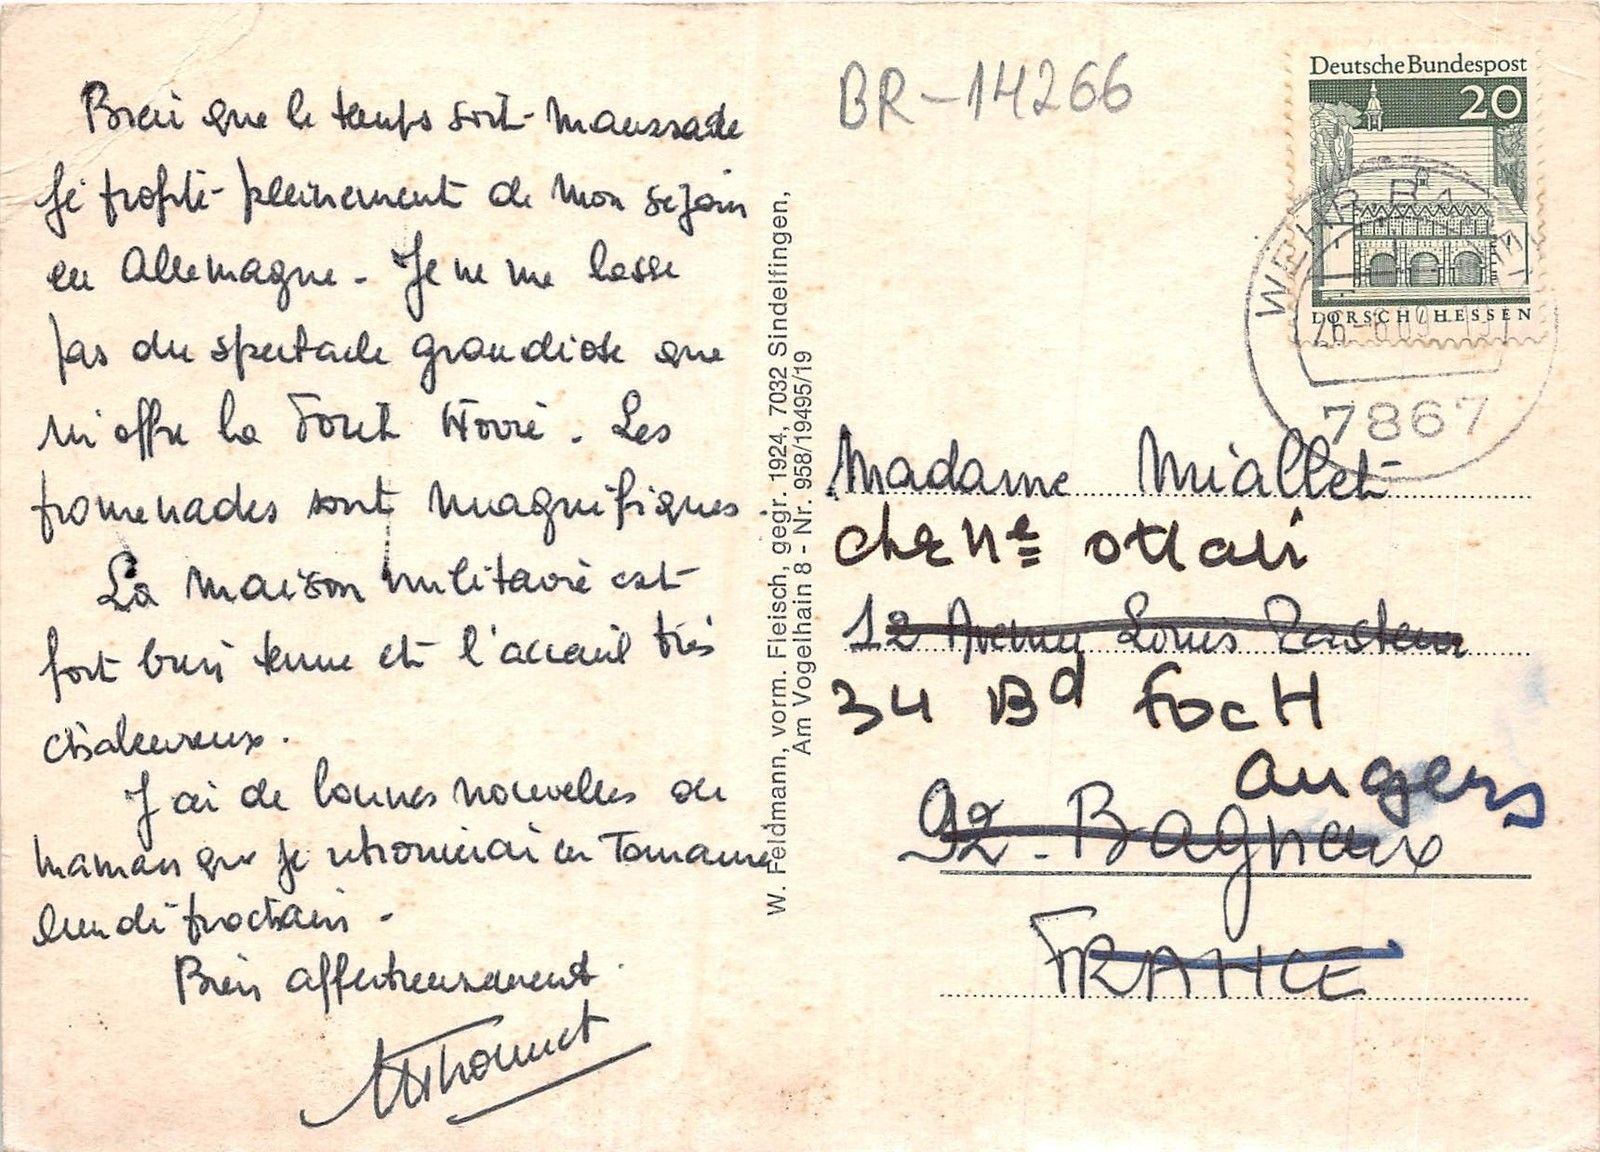 Bien que le temps soit maussade
je profite pleinement de mon séjour
en Allemagne - Je ne me lasse
pas du spectacle grandiose que
m'offre la Forêt Noire. Les
promenades sont magnifiques
La maison militaire est
fort bien tenue et l'accueil très
chaleureux.
J'ai de bonnes nouvelles de
maman que je retrouverai en
lundi prochain -
Bien affectueusement.
BR-14266
Deutsche Bundespost
20
LORSCH/HESSEN
7867
W. Feldmann, vorm. Fleisch, gegr. 1924, 7032 Sindelfingen,
Am Vogelhain 8 - Nr. 958/19495/19
Madame Miallet
chez Me Ottavi
12 Avenue Louis Pasteur
34 Bd FocH
angers
92 - Bagneux
FRANCE